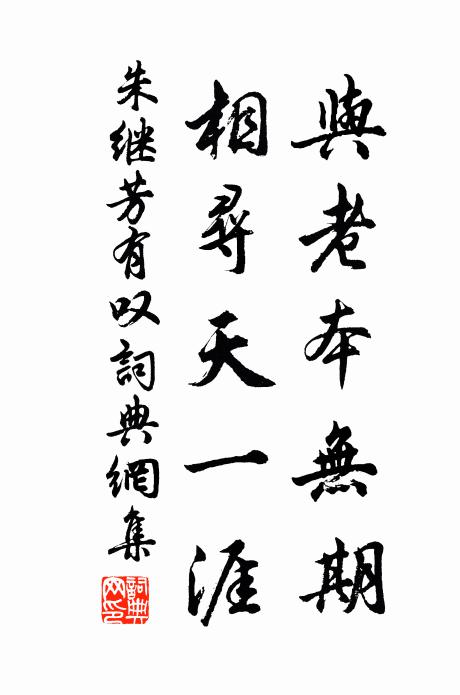 與老本無期
相尋天一涯
朱继芳有叹詞典網集
詞典網印